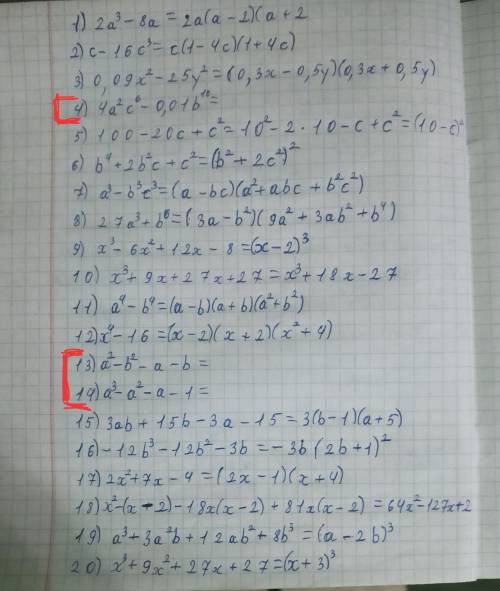 1) 2a³ - 8a = 2a(a - 2)(a + 2
2) c - 16c³ = c(1 - 4c)(1 + 4c)
3) 0,09x² - 25y² = (0,3x - 0,5y)(0,3x + 0,5y)
4) 4a²c⁶ - 0,01b¹⁰ =
5) 100 - 20c + c² = 10² - 2 · 10 - c + c² = (10 - c)²
6) b⁴ + 2b²c + c² = (b² + 2c²)²
7) a³ - b³c³ = (a - bc)(a² + abc + b²c²)
8) 27a³ + b⁶ = (3a - b²)(9a² + 3ab² + b⁴)
9) x³ - 6x² + 12x - 8 = (x - 2)³
10) x³ + 9x + 27x + 27 = x³ + 18x - 27
11) a⁴ - b⁴ = (a - b)(a + b)(a² + b²)
12) x⁴ - 16 = (x - 2)(x + 2)(x² + 4)
13) a² - b² - a - b =
14) a³ - a² - a - 1 =
15) 3ab + 15b - 3a - 15 = 3(b - 1)(a + 5)
16 - 12b³ - 12b² - 3b = - 3b (2b + 1)²
17) 2x² + 7x - 4 = (2x - 1)(x + 4)
18) x² - (x - 2) - 18x(x - 2) + 81x(x - 2) = 64x² - 127x + 2
19) a³ + 3a²b + 12ab² + 8b³ = (a - 2b)³
20) x³ + 9x² + 27x + 27 = (x + 3)³